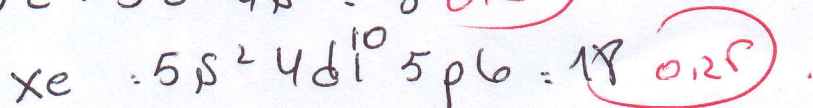 xe : 5s² 4d¹⁰ 5p6 = 18 0,25